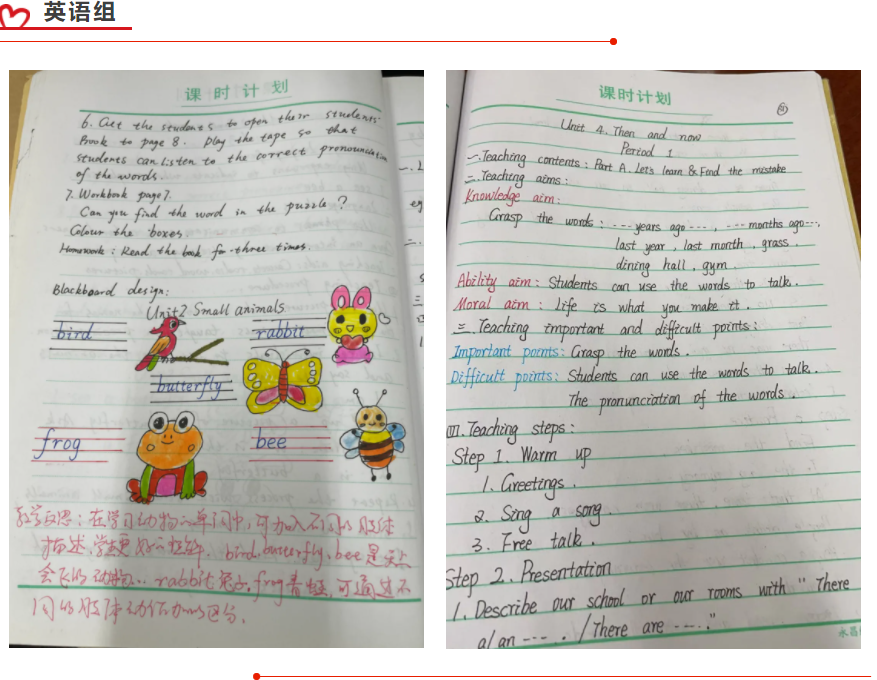 英语组
课时计划
6. Get the students to open their students'
Book to page 8. Play the tape so that
students can listen to the correct pronunciation
of the words.
7. Workbook page 7.
Can you find the word in the puzzle?
Colour the boxes
Homework: Read the book for three times.
Blackboard design:
Unit2 Small animals
bird
rabbit
butterfly
frog
bee
教学反思:在学习动物的单词中,可加入不同的肢体
描述,学生更好的理解. bird, butterfly, bee 是天上
会飞的动物... rabbit 兔子, frog 青蛙, 可通过不
同的肢体动作加以区分.
课时计划
Unit 4. Then and now
Period 1
一.Teaching contents: Part A. Let's learn & Find the mistake
二.Teaching aims:
Knowledge aim:
Grasp the words: ---years ago---, ---months ago---,
last year, last month, grass,
dining hall, gym.
Ability aim: Students can use the words to talk.
Moral aim: Life is what you make it.
三.Teaching important and difficult points:
Important points: Grasp the words.
Difficult points: Students can use the words to talk.
The pronunciation of the words.
四.Teaching steps:
Step 1. Warm up
1. Greetings.
2. Sing a song.
3. Free talk.
Step 2. Presentation
1. Describe our school or our rooms with "There
a/an ---. / There are ---."